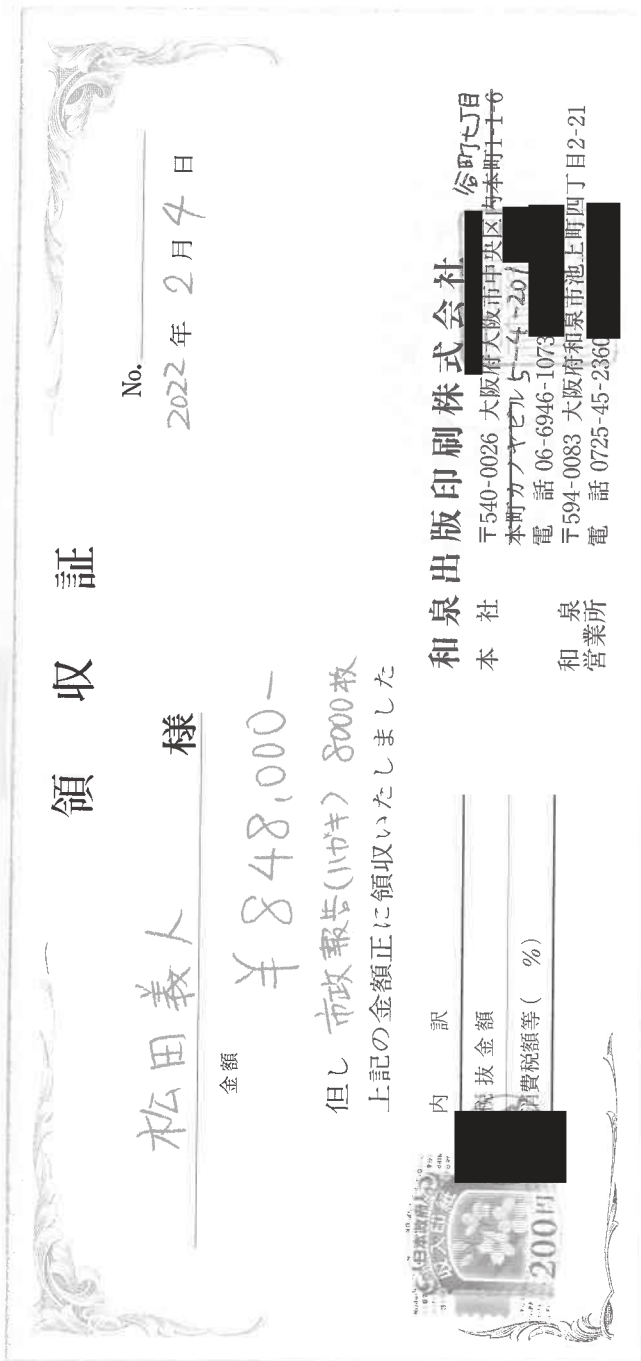 領収証
No.
2022年2月4日
松田義人 様
金額
¥848,000-
但し 市政報告(ハガキ) 8000枚
上記の金額正に領収いたしました
内訳
税抜金額
消費税額等( %)
日本政府
収入印紙
200円
和泉出版印刷株式会社
谷町七丁目
本社 〒540-0026 大阪府大阪市中央区内本町1-1-6
本町カノヤビル 5-4-201
電話 06-6946-1073
和泉営業所 〒594-0083 大阪府和泉市池上町四丁目2-21
電話 0725-45-2360